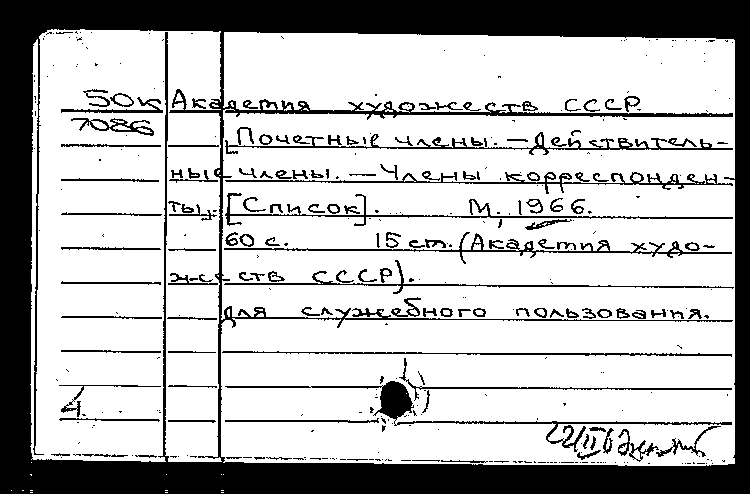 50к Академия художеств СССР
7086
[Почетные члены. — Действитель-
ные члены. — Члены корреспонден-
ты. [Список]. М., 1966.
60 с. 15 см. (Академия худо-
жеств СССР).
Для служебного пользования.
4.
22/II